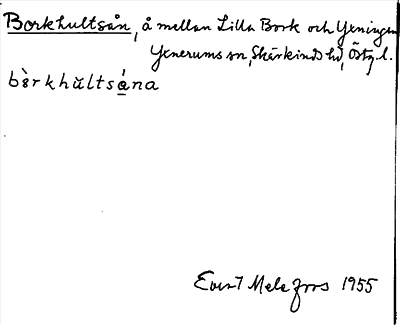 Borkhultsån, å mellan Lilla Bork och Yxningen
Yxnerums sn, Skärkinds hd, Östg.l.
bè̩rkhŭltsá̱na
Evert Melefors 1955